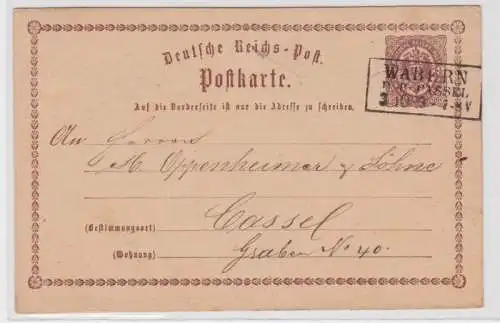 Deutsche Reichs-Post.
Postkarte.
WABERN
CASSEL
Auf die Vorderseite ist nur die Adresse zu schreiben.
An Herren
M. Oppenheimer & Söhne
(Bestimmungsort) Cassel
(Wohnung) Graben No 40.